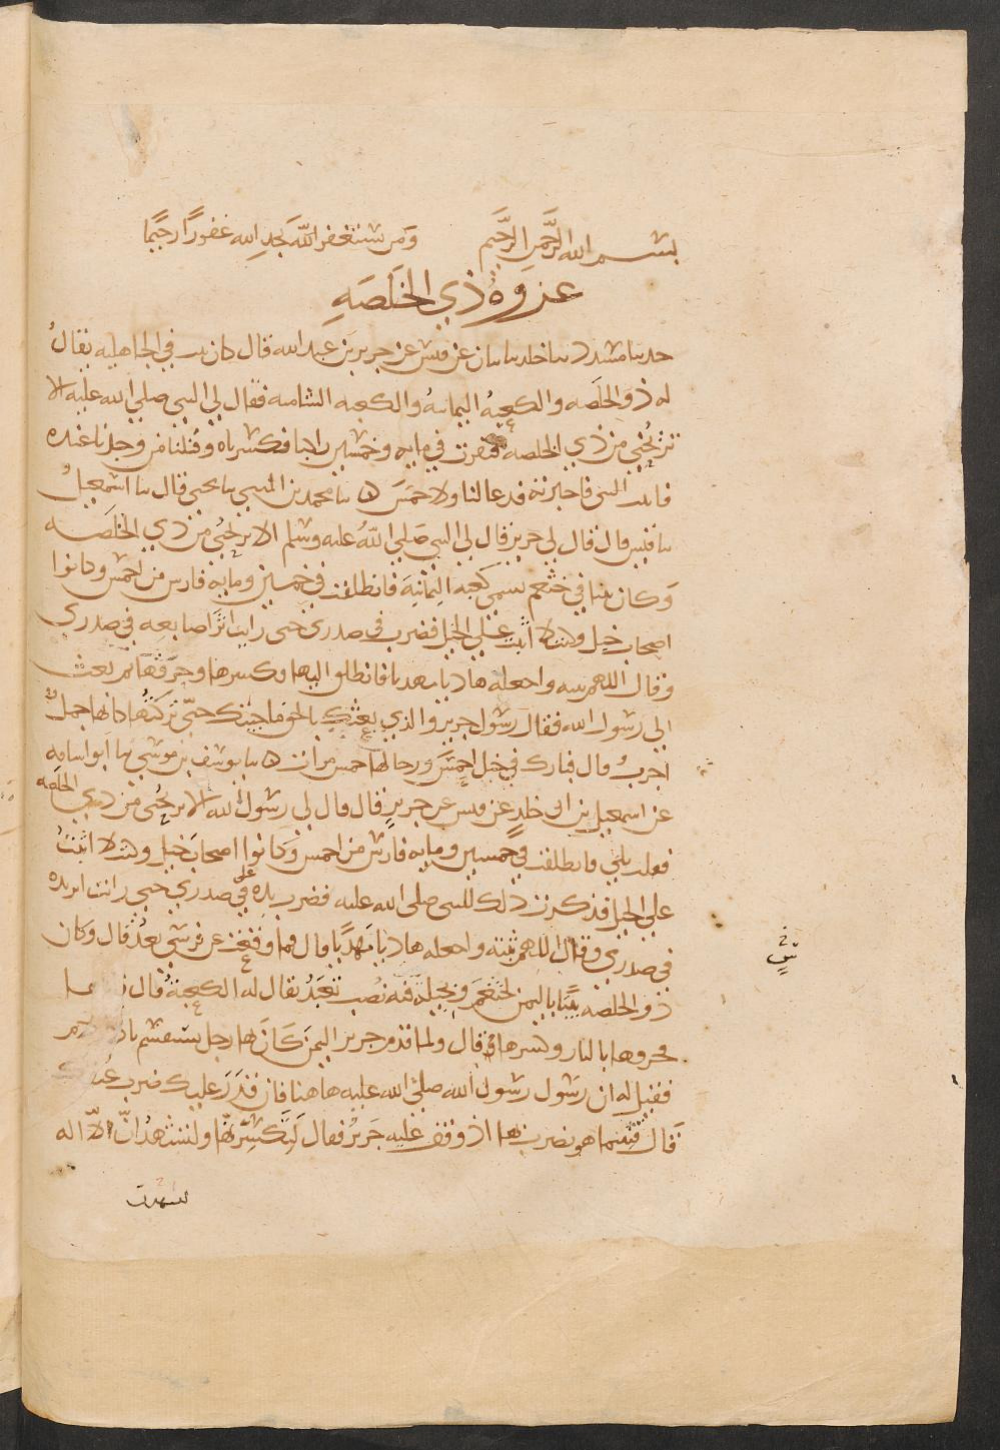 بسم الله الرحمن الرحيم ومن يستغفر الله يجد الله غفورا رحيما
غزوة ذي الخلصة
حدثنا مسدد ثنا خالد ثنا بيان عن قيس عن جرير بن عبد الله قال كان بيت في الجاهلية يقال
له ذو الخلصه والكعبة اليمانية والكعبه الشامية فقال لي النبي صلى الله عليه الا
تريحني من ذي الخلصه فنفرت في مايه وخمسين راكبا فكسرناه وقتلنا من وجدنا عنده
فاتيت النبي فاخبرته فدعا لنا ولاحمس ثنا محمد بن المثنى ثنا يحيى قال ثنا اسمعيل
ثنا قيس قال قال لي جرير قال لي النبي صلى الله عليه وسلم الا تريحني من ذي الخلصه
وكان بيتا في خثعم يسمى كعبه اليمانية فانطلقت في خمسين ومايه فارس من احمس وكانوا
اصحاب خيل وكنت لا اثبت على الخيل فضرب في صدري حتى رايت اثر اصابعه في صدري
وقال اللهم ثبته واجعله هاديا مهديا فانطلق اليها وكسرها وحرقها ثم بعث
الى رسول الله فقال رسول جرير والذي بعثك بالحق ما جيتك حتى تركتها كانها جمل
اجرب قال فبارك في خيل احمس ورجالها خمس مرات ثنا يوسف بن موسى ثنا ابو اسامه
عن اسمعيل بن ابي خالد عن قيس عن جرير قال قال لي رسول الله الا تريحني من ذي الخلصه
فقلت بلى فانطلقت في خمسين ومايه فارس من احمس وكانوا اصحاب خيل وكنت لا اثبت
على الخيل فذكرت ذلك للنبي صلى الله عليه فضرب يده على صدري حتى رايت اثر يده
في صدري وقال اللهم ثبته واجعله هاديا مهديا قال فما وقعت عن فرس بعد قال وكان
ذو الخلصه بيتا باليمن لخثعم وبجيلة فيه نصب تعبد يقال له الكعبة قال
فحرقها بالنار وكسرها قال ولما قدم جرير اليمن كان بها رجل يستقسم
فقيل له ان رسول رسول الله صلى الله عليه هاهنا فان قدر عليك ضرب عنقك
قال فبينما هو يضرب بها اذ وقف عليه جرير فقال لتكسرنها ولتشهدن ان لا اله